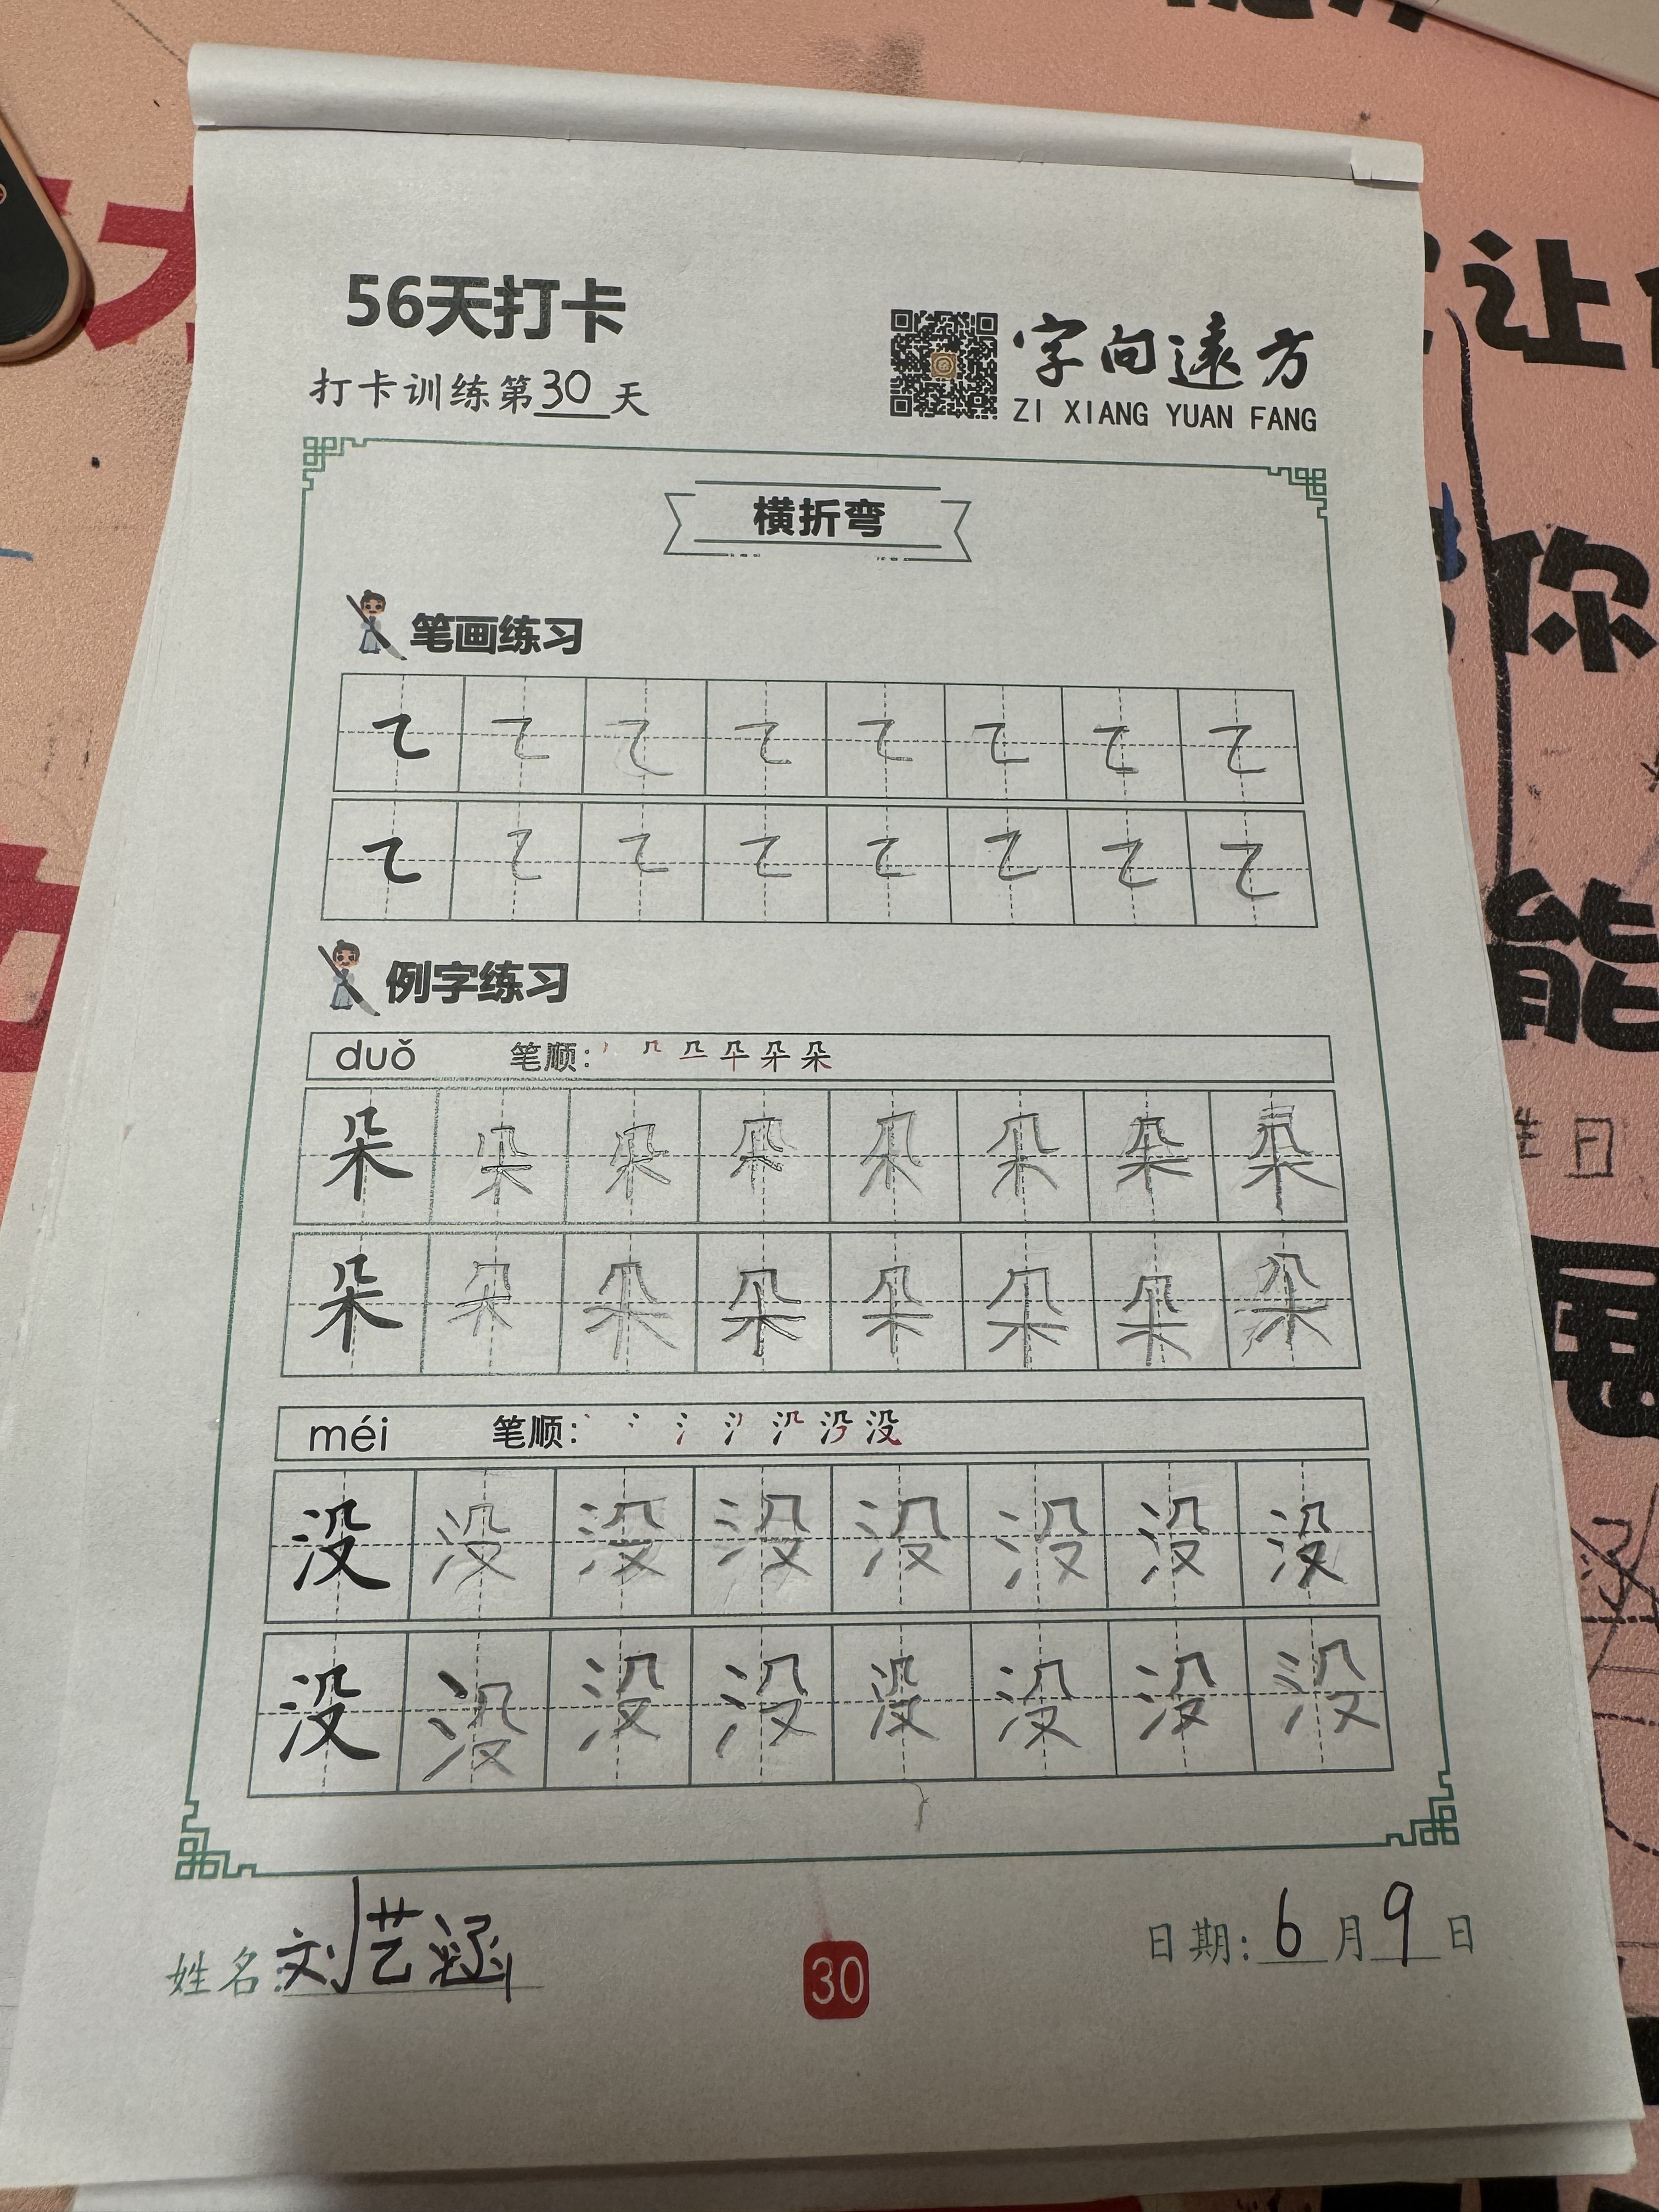 56天打卡
打卡训练第30天
字向遠方
ZI XIANG YUAN FANG
横折弯
笔画练习
例字练习
duǒ 笔顺：
朵 朵 朵 朵 朵 朵 朵 朵
朵 朵 朵 朵 朵 朵 朵 朵
méi 笔顺：
没 没 没 没 没 没 没 没
没 没 没 没 没 没 没 没
姓名：刘艺涵
30
日期：6月9日
让
你
能